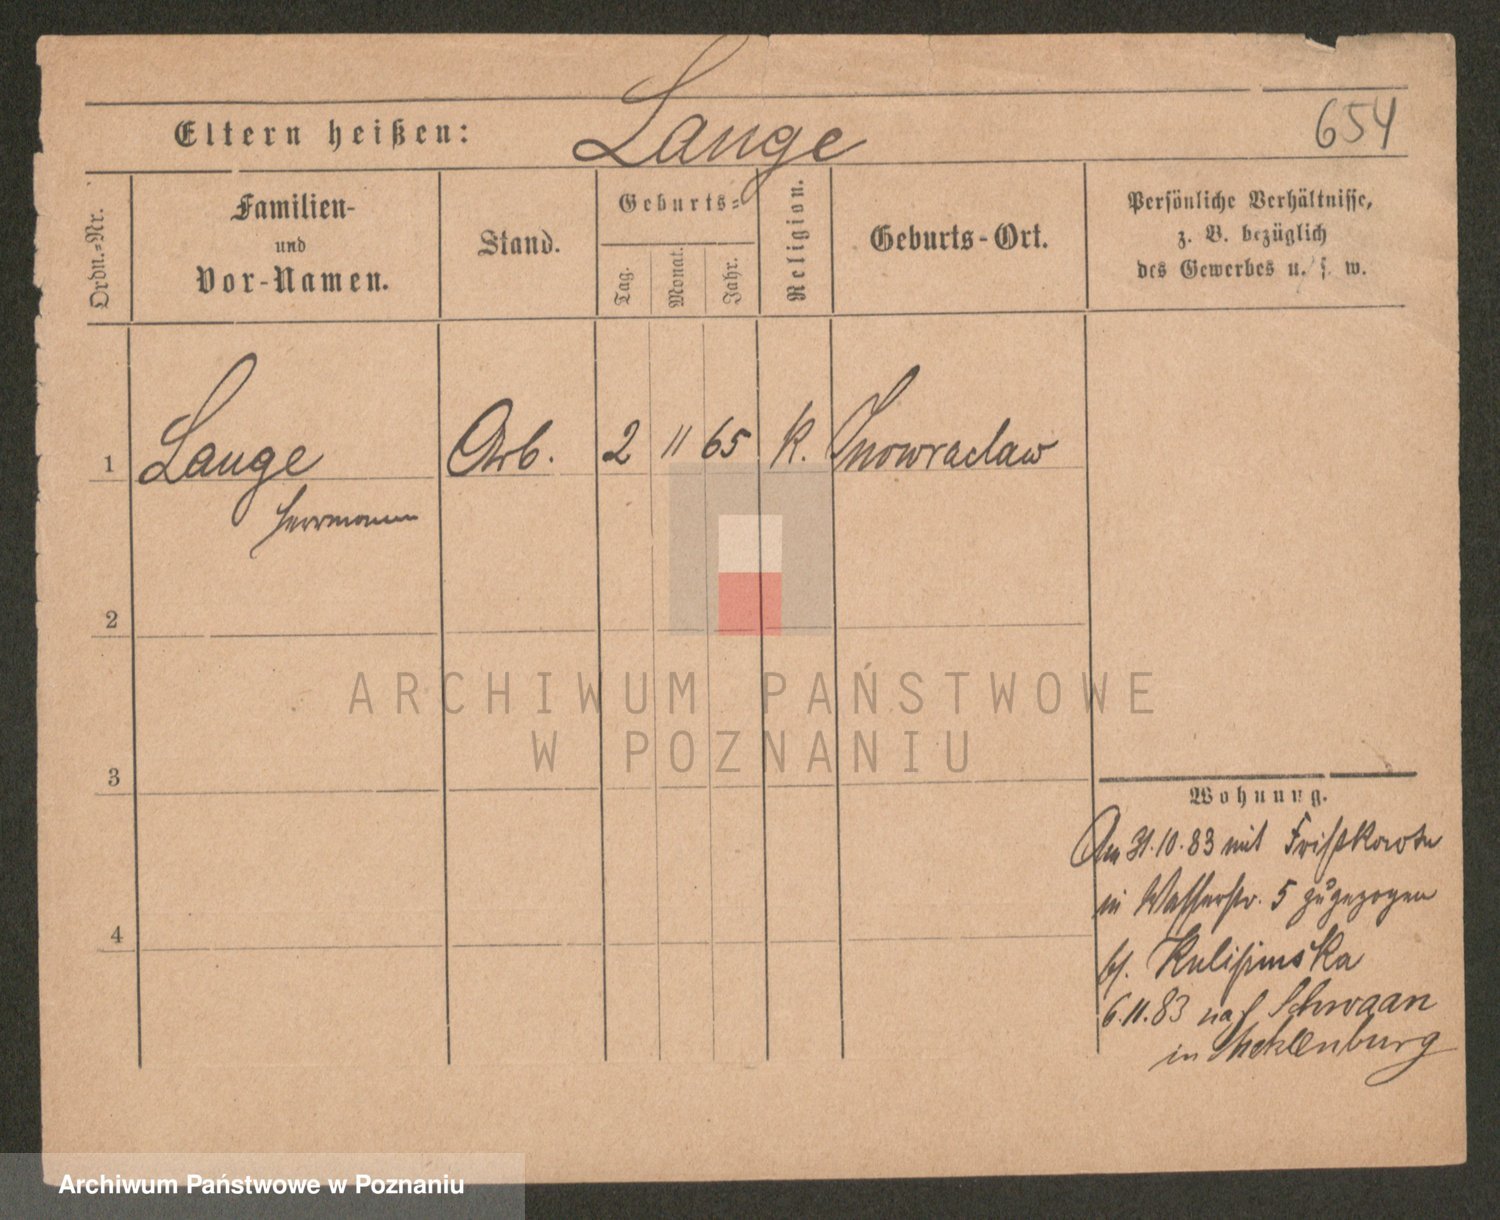 Lange
Eltern heißen:
654
Ordn.-Nr.
Familien-
und
Vor-Namen.
Stand.
Geburts-
Tag.
Monat.
Jahr.
Religion.
Geburts-Ort.
Persönliche Verhältnisse,
z. B. bezüglich
des Gewerbes u. s. w.
1 Lange Arb. 2 11 65 k. Inowraclaw
Herrmann
2
3
4
Wohnung.
Am 31.10.83 mit
in Wasserstr. 5 zugezogen
bei
6.11.83 nach Schwaan
in Meklenburg
ARCHIWUM PAŃSTWOWE
W POZNANIU
Archiwum Państwowe w Poznaniu